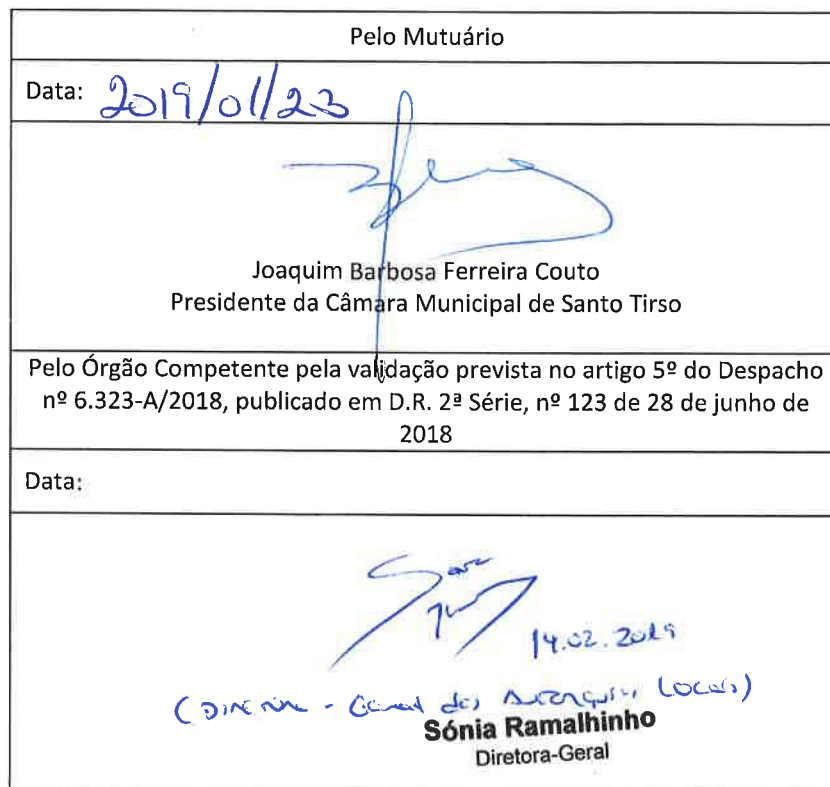 Pelo Mutuário
Data: 2019/01/23
Joaquim Barbosa Ferreira Couto
Presidente da Câmara Municipal de Santo Tirso
Pelo Órgão Competente pela validação prevista no artigo 5º do Despacho
nº 6.323-A/2018, publicado em D.R. 2ª Série, nº 123 de 28 de junho de
2018
Data:
14.02.2019
(Diretora - Geral das Autarquias Locais)
Sónia Ramalhinho
Diretora-Geral